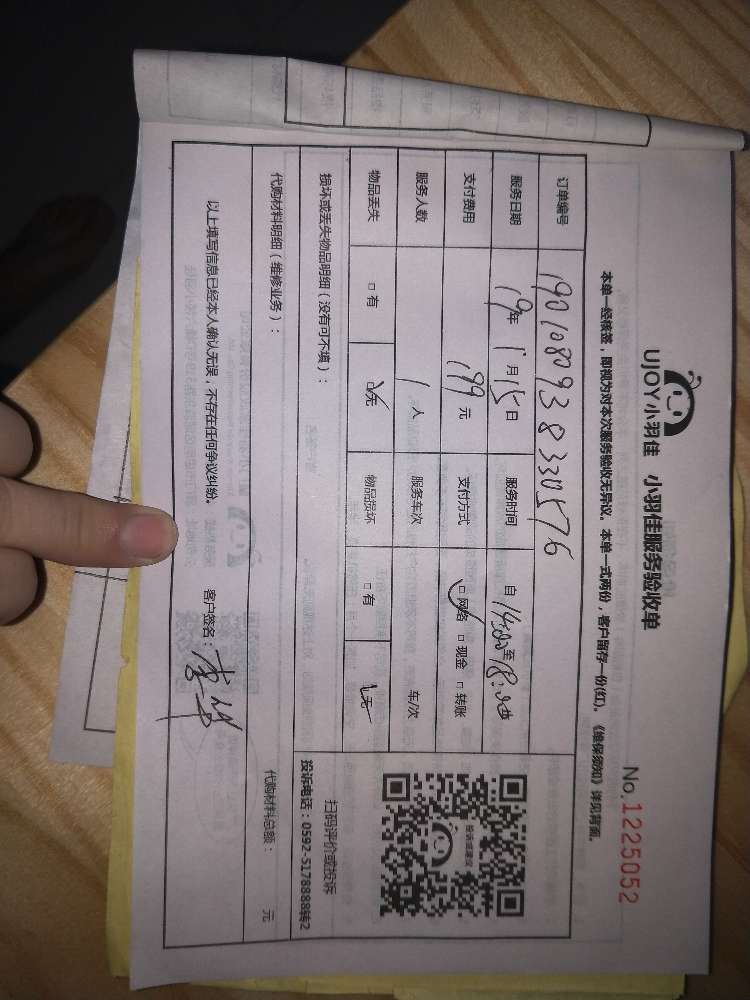 No.1225052
UJOY小羽佳 小羽佳服务验收单
本单一经核签,即视为对本次服务验收无异议。本单一式两份,客户留存一份(红)。《维保须知》详见背面。
订单编号 1901080938330576
服务日期 19年 1月15日 服务时间 自14:00至18:00
支付费用 199元 支付方式 □网络 □现金 □转账
服务人数 1人 服务车次 车/次
物品丢失 □有 □无 物品损坏 □有 □无
投诉或建议
扫码评价或投诉
投诉电话:0592-5178888转2
损坏或丢失物品明细(没有可不填):
代购材料明细(维修业务): 代购材料总额: 元
以上填写信息已经本人确认无误,不存在任何争议纠纷。 客户签名: